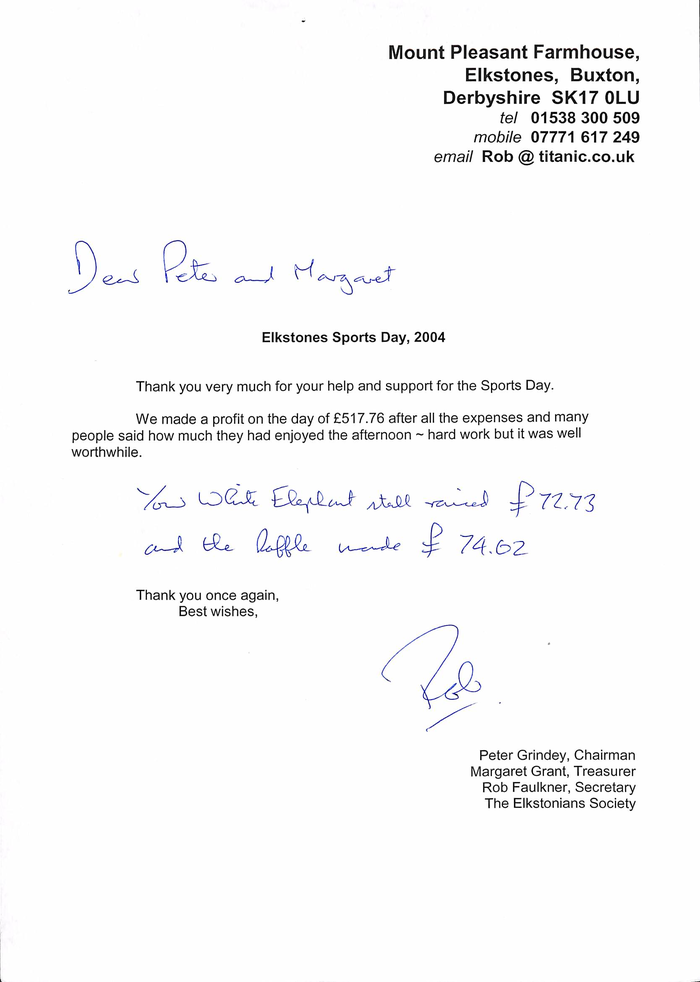 Mount Pleasant Farmhouse,
Elkstones, Buxton,
Derbyshire SK17 0LU
tel 01538 300 509
mobile 07771 617 249
email Rob @ titanic.co.uk
Dear Peter and Margaret
Elkstones Sports Day, 2004
Thank you very much for your help and support for the Sports Day.
We made a profit on the day of £517.76 after all the expenses and many
people said how much they had enjoyed the afternoon ~ hard work but it was well
worthwhile.
Your White Elephant stall raised £72.73
and the Raffle made £ 74.62
Thank you once again,
Best wishes,
Rob
Peter Grindey, Chairman
Margaret Grant, Treasurer
Rob Faulkner, Secretary
The Elkstonians Society